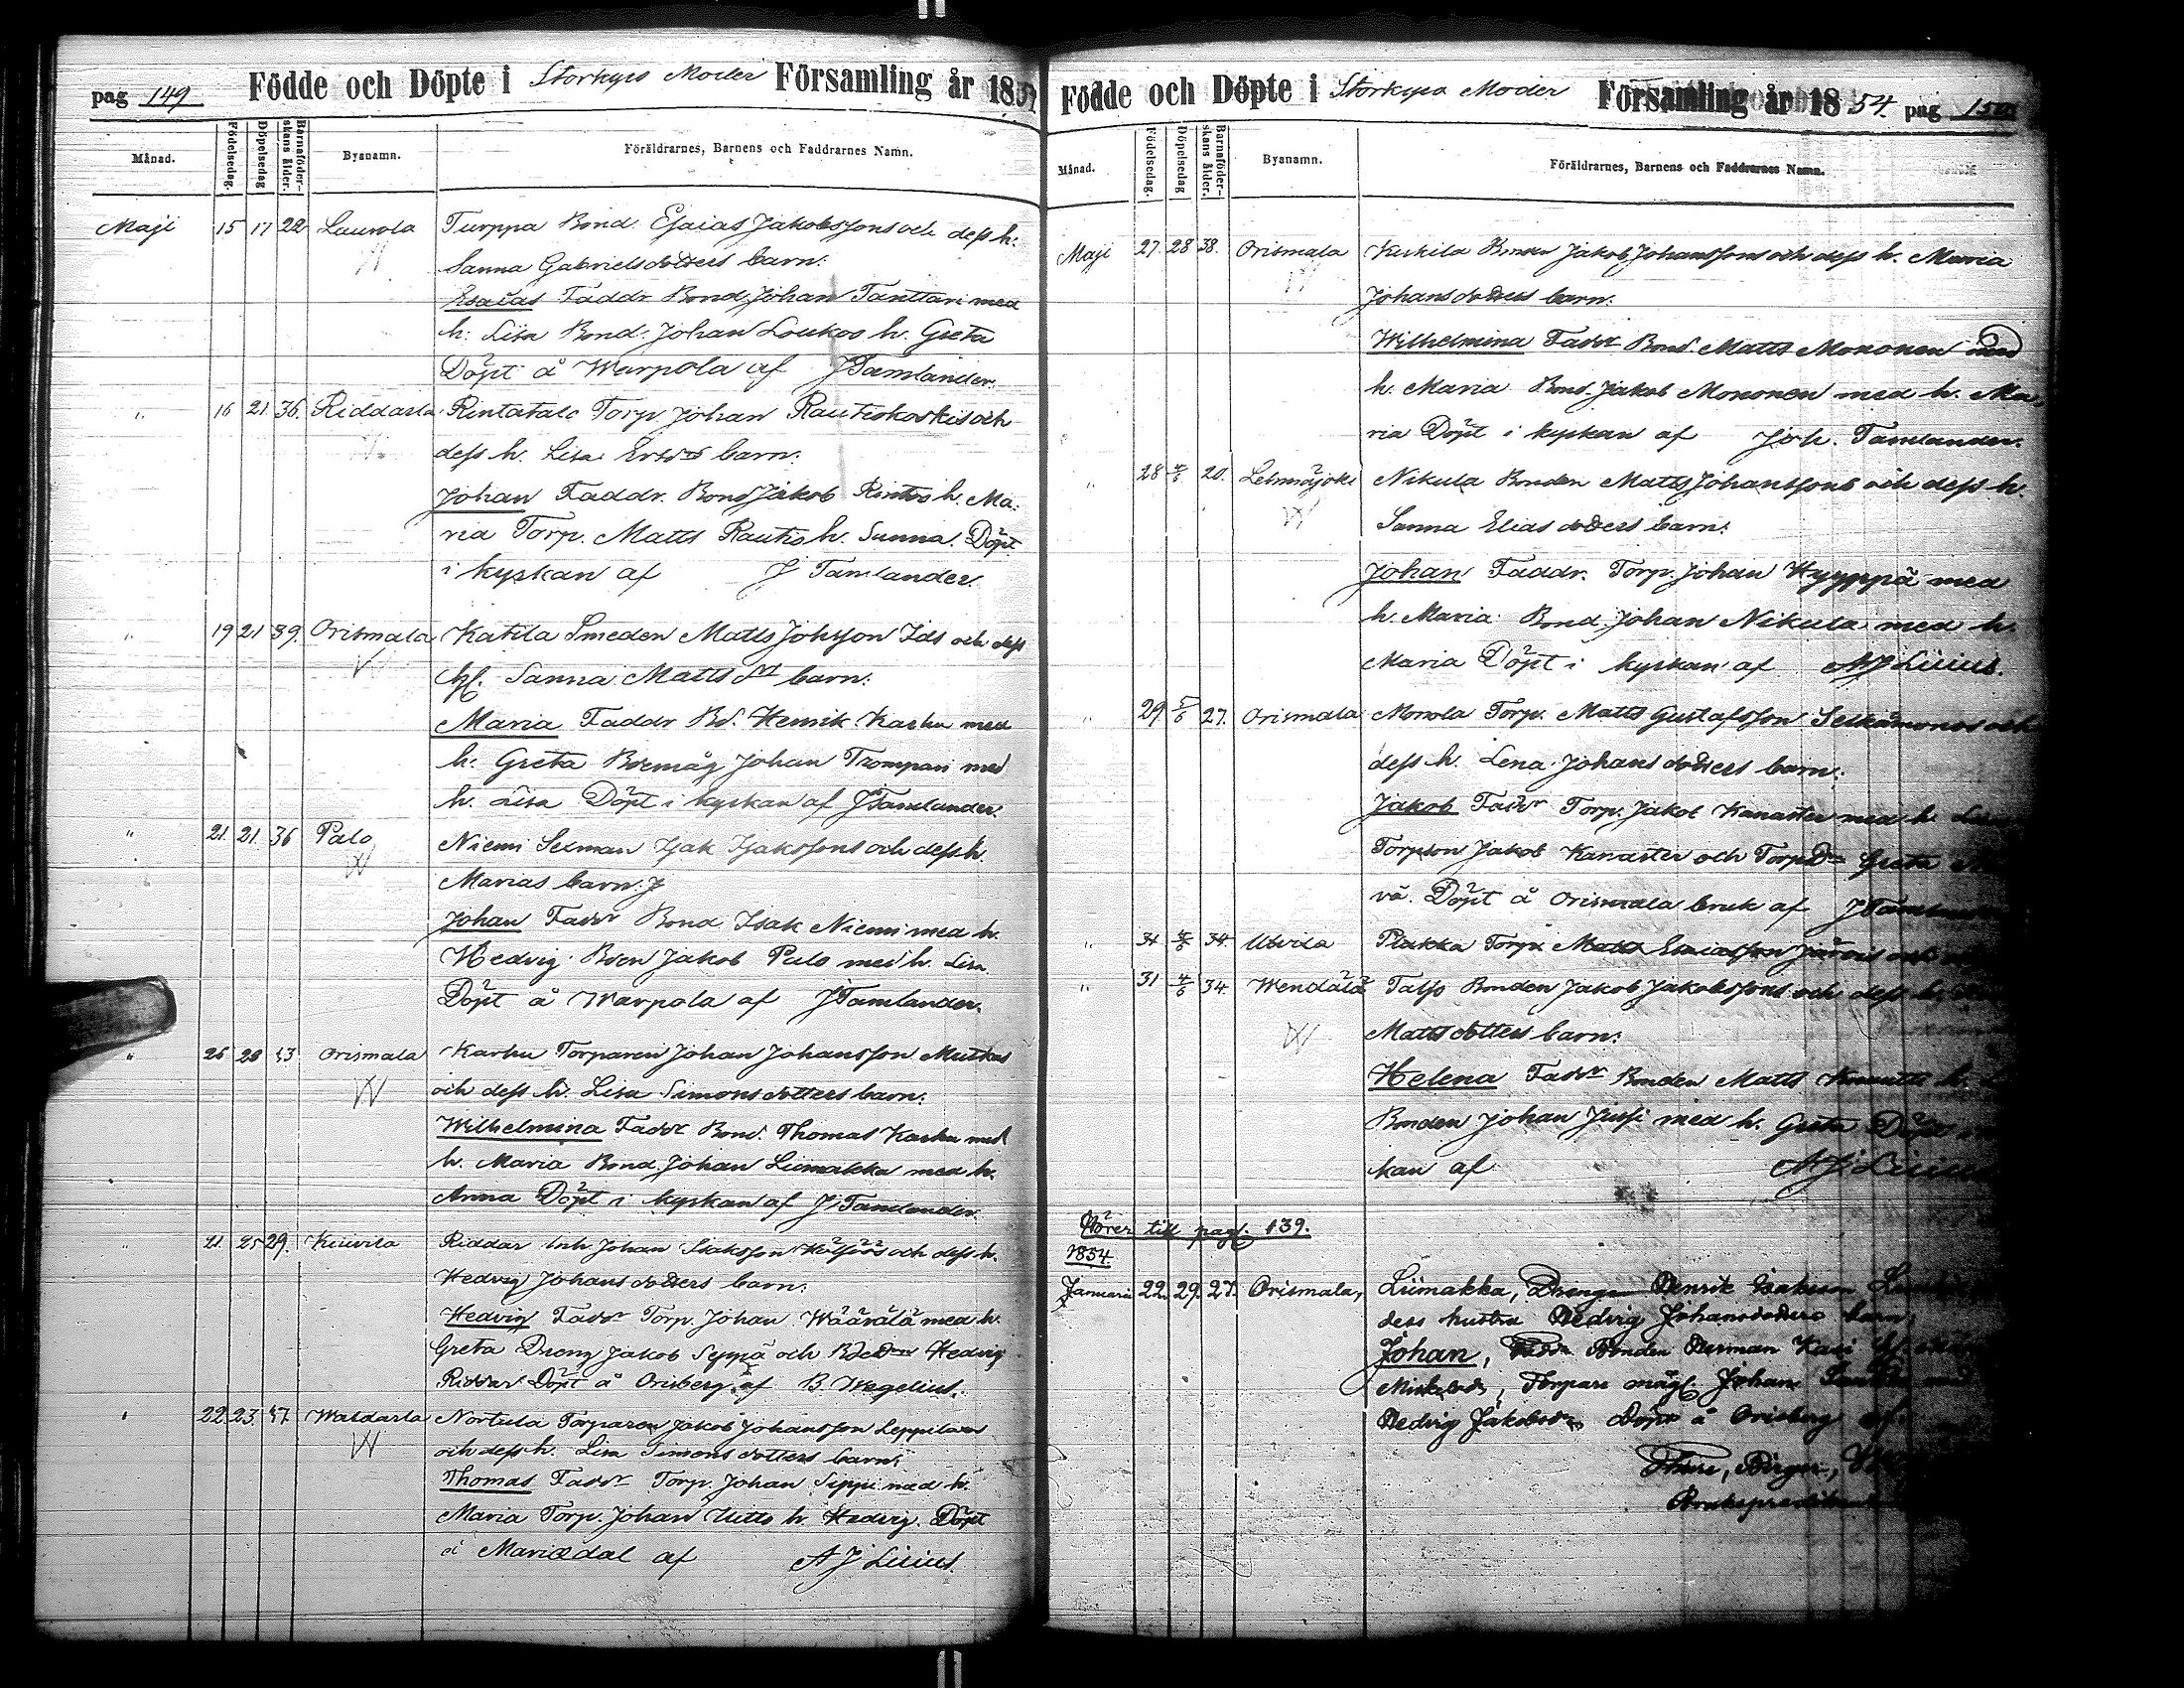 pag 149 Födde och Döpte i Storkyro Moder Församling år 1854
Månad. Födelsedag. Döpelsedag Barnaföderskans ålder. Bysnamn. Föräldrarnes, Barnens och Faddrarnes Namn.
Maji 15 17 22 Laurola Turppa Bond. Esaias Jakobssons och dess h.
Sanna Gabrielsdotters barn:
Esaias Faddr. Bond. Johan Tanttari med
h: Lisa Bond. Johan Loukos h. Greta
Döpt å Warpola af J Tamlander.
" 16 21 36. Riddarla Rintatalo Torp. Johan Rautiokoskis och
dess h. Lisa Ersdr barn:
Johan Faddr. Bond Jakob Rintos h. Ma:
ria Torp. Matts Rautio h. Sanna. Döpt
i kyrkan af J Tamlander.
" 19 21 39. Orismala Katila Smeden Matts Johsson Ids och dess
h. Sanna Matts dr barn:
Maria Faddr Bd. Henrik Karhu med
h. Greta Bdemåg Johan Trompari med
h. Lisa Döpt i kyrkan af J Tamlander.
" 21. 21. 36 Palo Niemi Sexman Isak Isakssons och dess h.
Marias barn:
Johan Faddr Bond Isak Niemi med h.
Hedvig Bden Jakob Palo med h. Lisa
Döpt å Warpola af J Tamlander.
" 26 28 43 Orismala Karhu Torparen Johan Johansson Mutkas
och dess h. Lisa Simonsdotters barn:
Wilhelmina Faddr Bond. Thomas Karhu med
h. Maria Bond. Johan Liimakka med h.
Anna Döpt i kyrkan af J Tamlander.
" 21. 25 29. Kuivila Riddar Inh Johan Isaksson och dess h.
Hedvig Johansdotters barn:
Hedvig Faddr Torp. Johan Wäärälä med h.
Greta Dreng Jakob Seppä och Hedvig
Riddar Döpt å Orisberg af B. Wegelius.
" 22 23 47. Waldarla Nortula Torparen Jakob Johansson Leppilas
och dess h. Lisa Simonsdotters barn:
Thomas Faddr Torp. Johan Seppi med h.
Maria Torp. Johan Uitto h. Hedvig. Döpt
å Mariedal af A J Lilius.
Födde och Döpte i Storkyro Moder Församling år 1854. pag 150
Månad. Födelsedag. Döpelsedag Barnaföderskans ålder. Bysnamn. Föräldrarnes, Barnens och Faddrarnes Namn.
Maji 27. 28 38. Orismala Kukila Bonden Jakob Johanssons och dess h. Maria
Johansdotters barn:
Wilhelmina Faddr Bond. Matts Mononen med
h. Maria Bond. Jakob Mononen med h. Ma,
ria Döpt i kyrkan af Joh. Tamlander.
" 28 4/6 20. Lehmäjoki Nikula Bonden Matts Johanssons och dess h.
Sanna Eliasdotters barn:
Johan Faddr. Torp. Johan Hyyppä med
h. Maria Bond. Johan Nikula med h.
Maria Döpt i kyrkan af A J Lilius.
" 29 5/6 27. Orismala Monola Torp. Matts Gustafsson Selkämonos och
dess h. Lena Johansdotters barn:
Jakob Faddr Torp. Jakob Kanaster med h.
Torpson Jakob Kanaster och Greta
vä. Döpt å Orismala bruk af J Tamlander
" 31 4/6 34. Ulvila Torp. Matts Esaiasson
" 31 4/6 34. Wendälä Talso Bonden Jakob Jakobssons och dess h.
Mattsdotters barn:
Helena Faddr Bonden Matts h.
Bonden Johan Jussi med h. Greta Döpt
kan af A J Lilius
Hörer till pag. 139.
1854.
Januari 22. 29. 27. Orismala, Liimakka, Drengen Henrik Isaksson
dess hustru Hedvig Johansdotters barn,
Johan, Faddr Bonden Herman Kasi
Mickelsdr, Torpare mågen Johan
Hedvig Jakobsdr Döpt å Orisberg af
Thure, Birger,
Brukspredikant